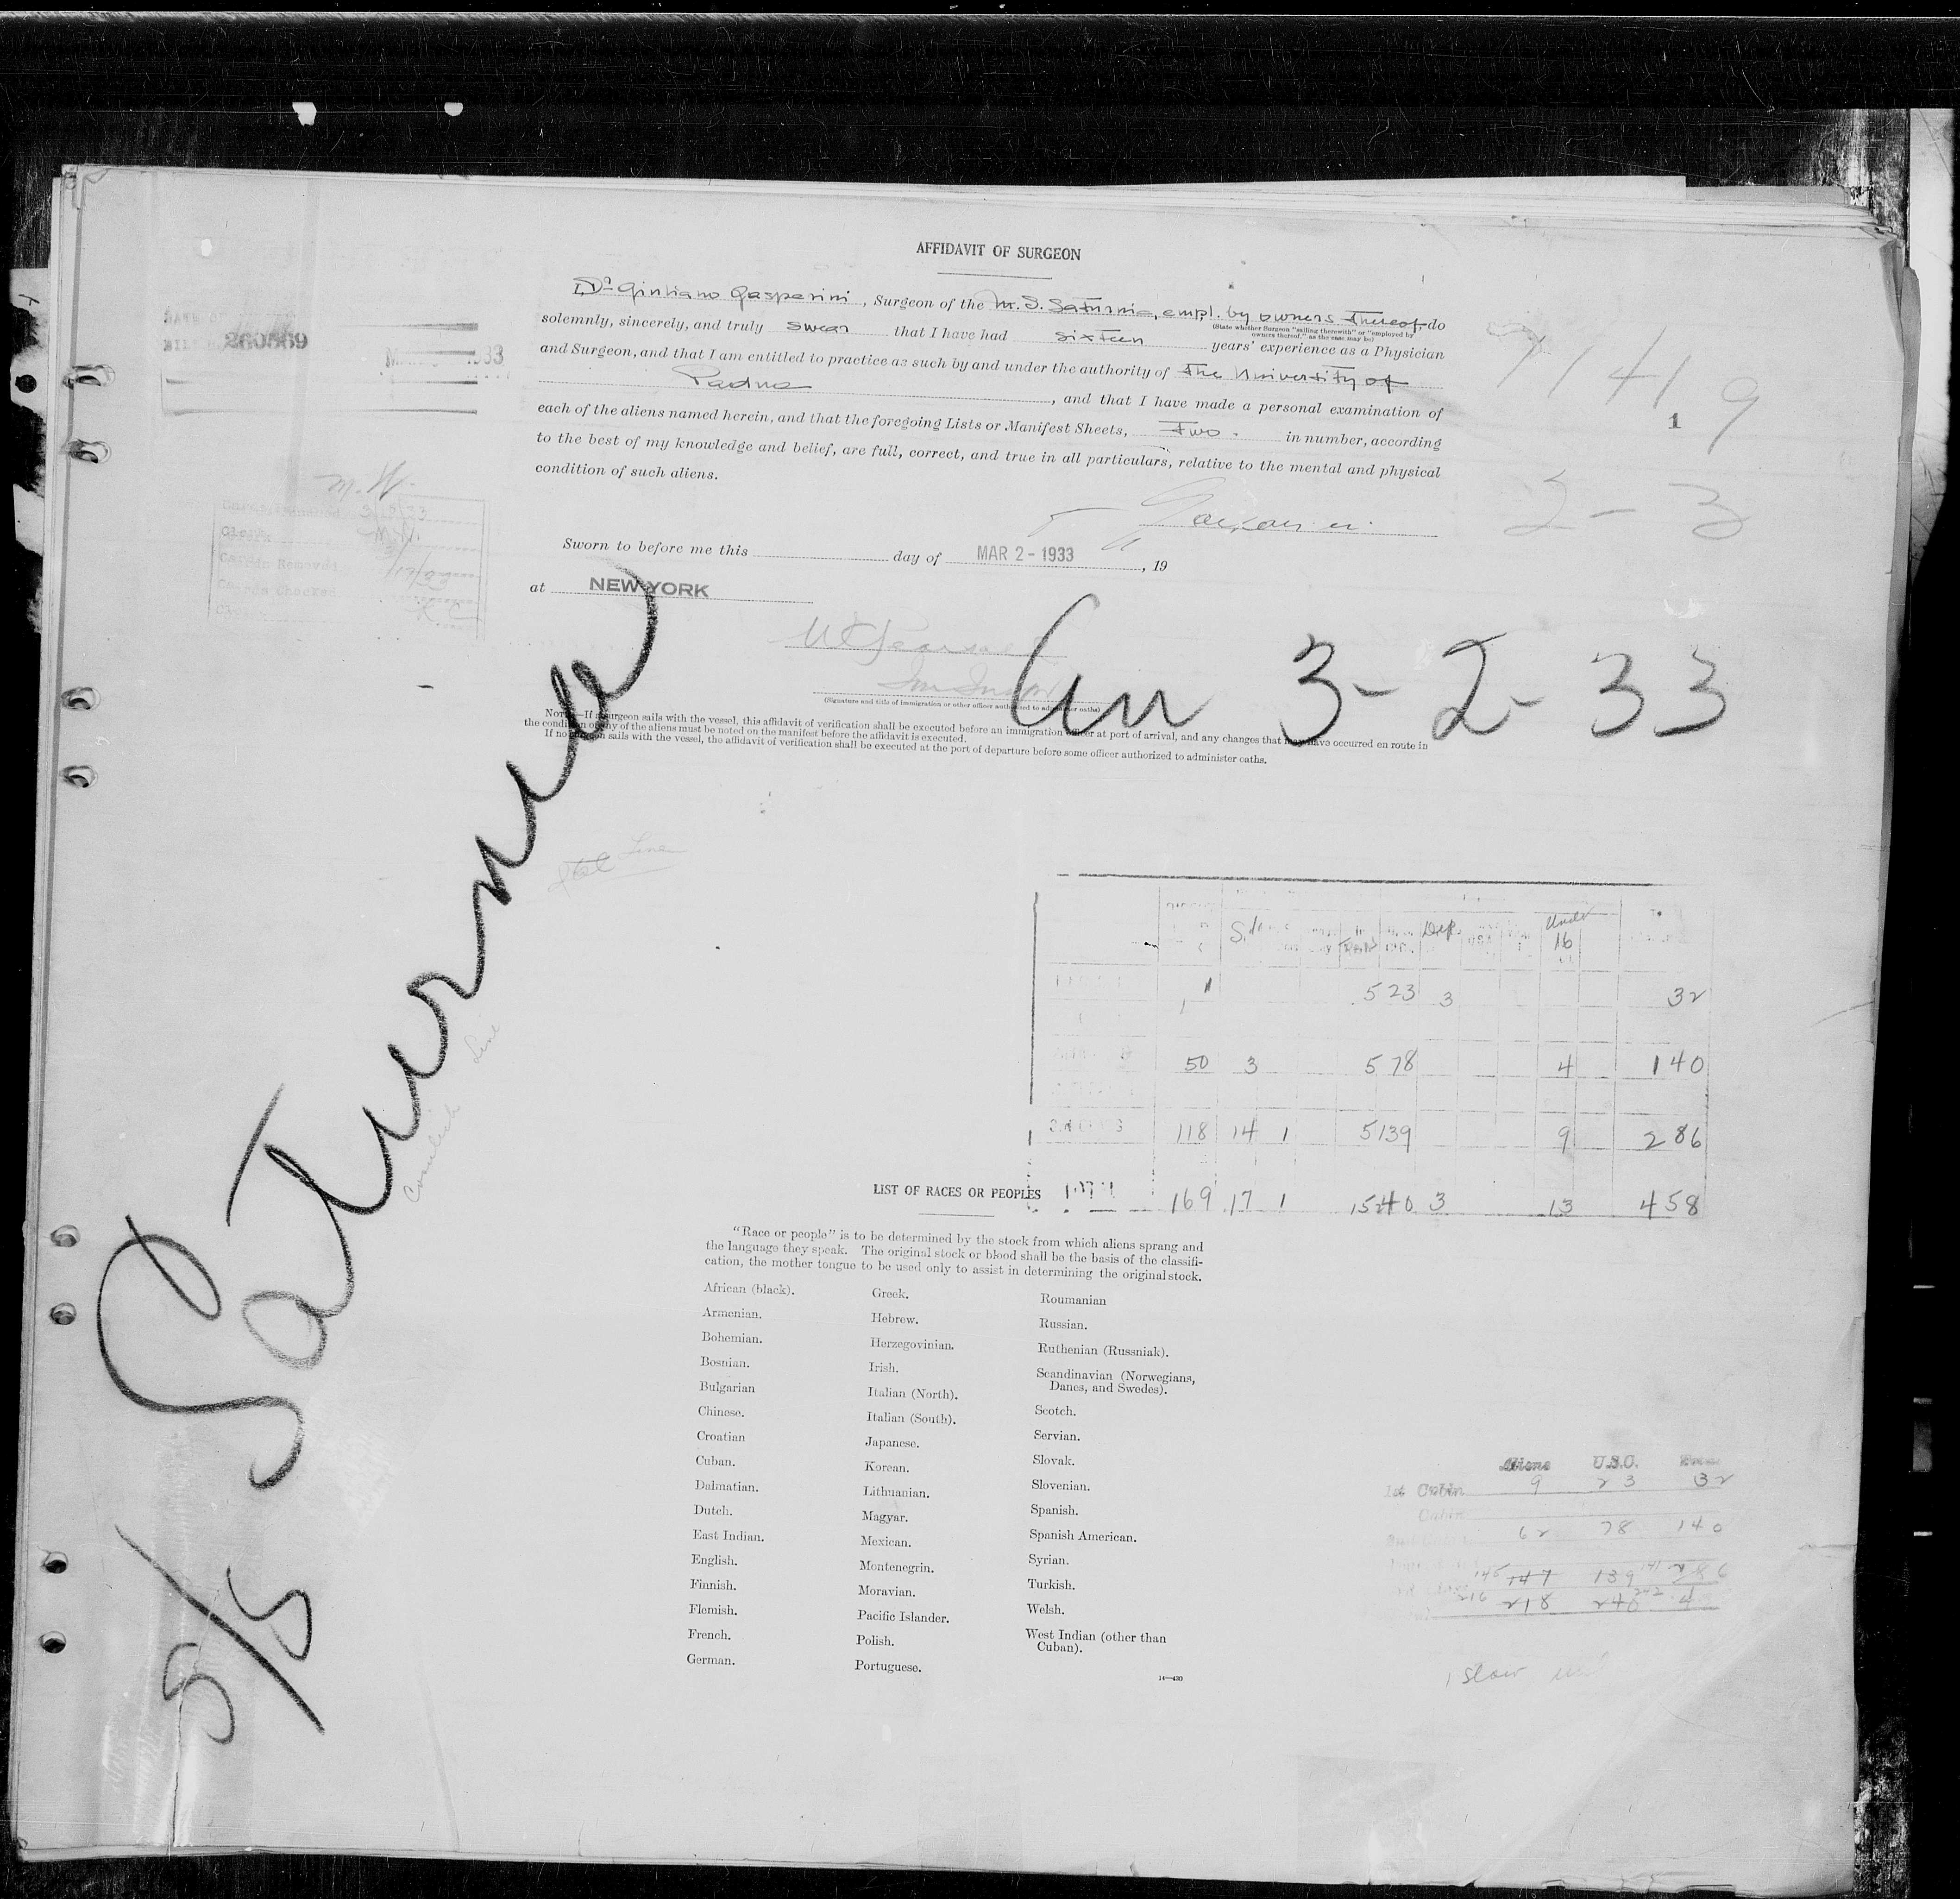 AFFIDAVIT OF SURGEON
I, Dr Giuliano Gasperini, Surgeon of the M.S. Saturnia, empl. by owners thereof do
(State whether Surgeon "sailing therewith" or "employed by owners thereof," as the case may be)
solemnly, sincerely, and truly swear that I have had sixteen years' experience as a Physician
and Surgeon, and that I am entitled to practice as such by and under the authority of the University of
Padua, and that I have made a personal examination of
each of the aliens named herein, and that the foregoing Lists or Manifest Sheets, two. in number, according
to the best of my knowledge and belief, are full, correct, and true in all particulars, relative to the mental and physical
condition of such aliens.
260569
1933
71419
1
2-3
M.W.
3/2/33
Cards Removed
Cards Checked
Sworn to before me this day of MAR 2-1933, 19
at NEW YORK
(Signature and title of immigration or other officer authorized to administer oaths)
Arr 3-2-33
NOTE.—If a surgeon sails with the vessel, this affidavit of verification shall be executed before an immigration officer at port of arrival, and any changes that may have occurred en route in
the condition of any of the aliens must be noted on the manifest before the affidavit is executed.
If no surgeon sails with the vessel, the affidavit of verification shall be executed at the port of departure before some officer authorized to administer oaths.
S/S Saturnia
Cosulich Line
Line
Dep. Under 16
1 5 23 3 32
50 3 5 78 4 140
118 14 1 5 139 9 286
169 17 1 15 240 3 13 458
LIST OF RACES OR PEOPLES
"Race or people" is to be determined by the stock from which aliens sprang and
the language they speak. The original stock or blood shall be the basis of the classifi-
cation, the mother tongue to be used only to assist in determining the original stock.
African (black).
Armenian.
Bohemian.
Bosnian.
Bulgarian
Chinese.
Croatian
Cuban.
Dalmatian.
Dutch.
East Indian.
English.
Finnish.
Flemish.
French.
German.
Greek.
Hebrew.
Herzegovinian.
Irish.
Italian (North).
Italian (South).
Japanese.
Korean.
Lithuanian.
Magyar.
Mexican.
Montenegrin.
Moravian.
Pacific Islander.
Polish.
Portuguese.
Roumanian
Russian.
Ruthenian (Russniak).
Scandinavian (Norwegians,
Danes, and Swedes).
Scotch.
Servian.
Slovak.
Slovenian.
Spanish.
Spanish American.
Syrian.
Turkish.
Welsh.
West Indian (other than
Cuban).
14—430
Aliens U.S.C.
1st Cabin 9 23 32
Cabin
62 78 140
145 147 139 141 286
216 218 240 242
1 slow